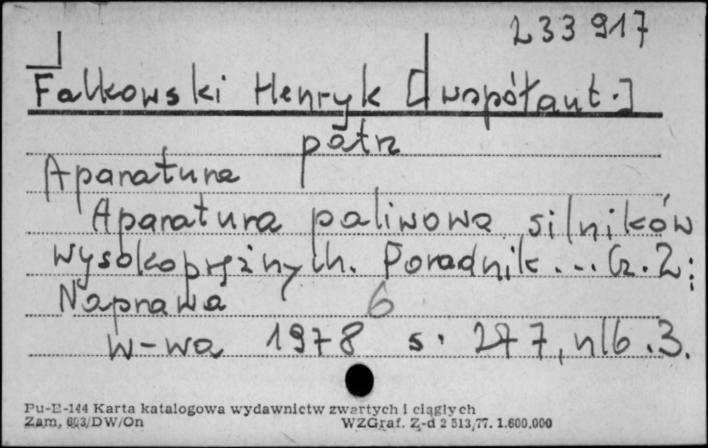 233 917
Falkowski Henryk [współaut.]
patrz
Aparatura
Aparatura paliwowa silników
wysokoprężnych. Poradnik ... Cz. 2:
Naprawa 6
W-wa 1978 s. 277, nlb. 3.
Pu-E-144 Karta katalogowa wydawnictw zwartych i ciągłych
Zam. 603/DW/On WZGraf. Z-d 2 513/77. 1.600.000